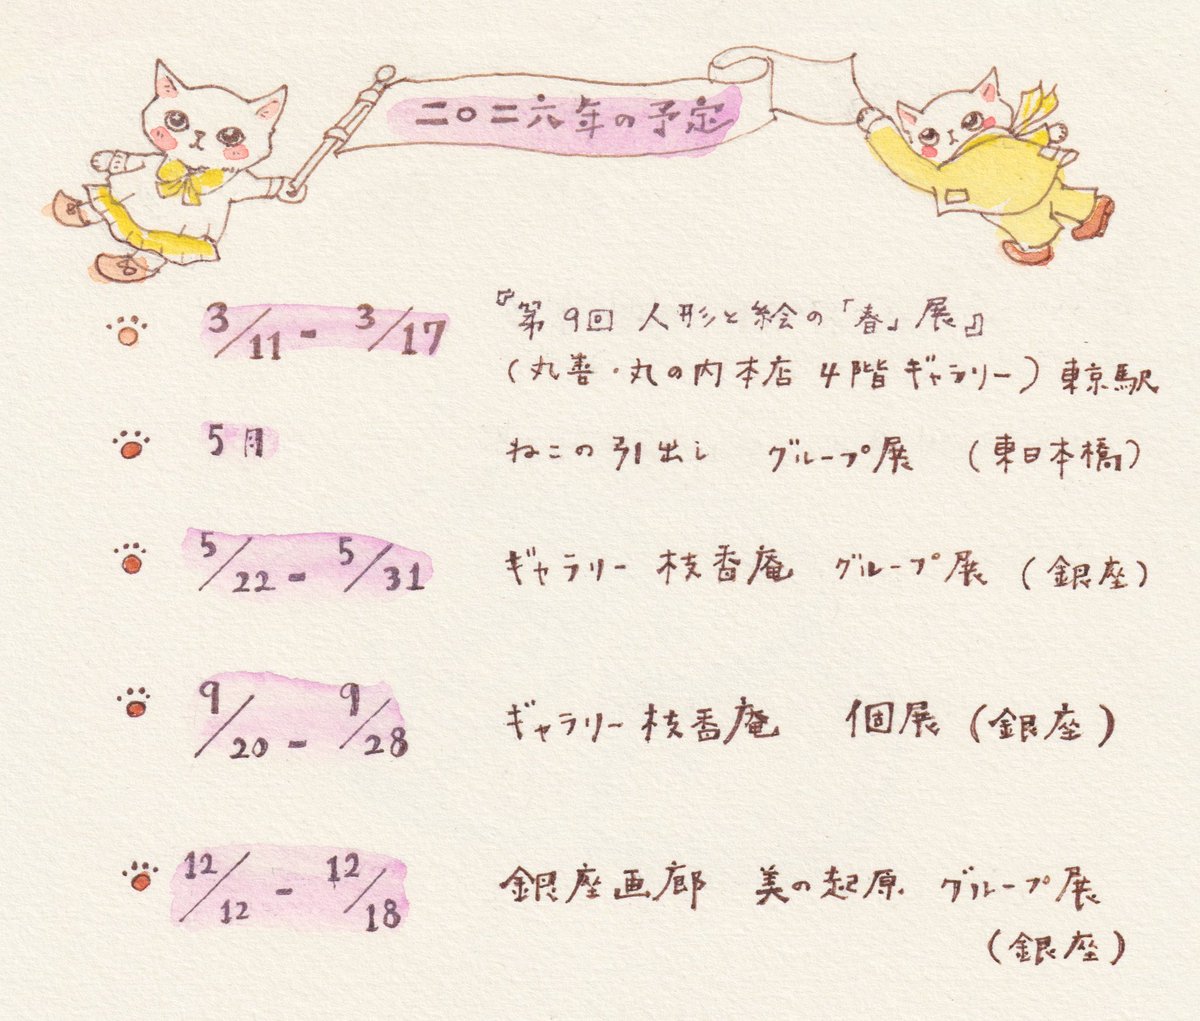 二〇二六年の予定
3/11 - 3/17 『第9回 人形と絵の「春」展』
(丸善・丸の内本店 4階 ギャラリー) 東京駅
5月 ねこの引出し グループ展 (東日本橋)
5/22 - 5/31 ギャラリー 枝香庵 グループ展 (銀座)
9/20 - 9/28 ギャラリー枝香庵 個展 (銀座)
12/12 - 12/18 銀座画廊 美の起原 グループ展
(銀座)